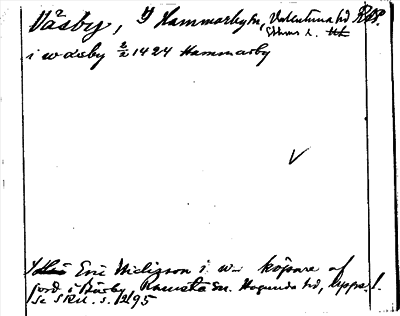 Väsby, I Hammarby sn, Vallentuna hd RAP.
Sthms l.
i wæsby 2/2 1424 Hammarby
V
Eric Nielsson i w– köpare af
jord i Bärby, Ramsta sn. Hagunda hd, Upps. l.
Se SRU. s. 1295